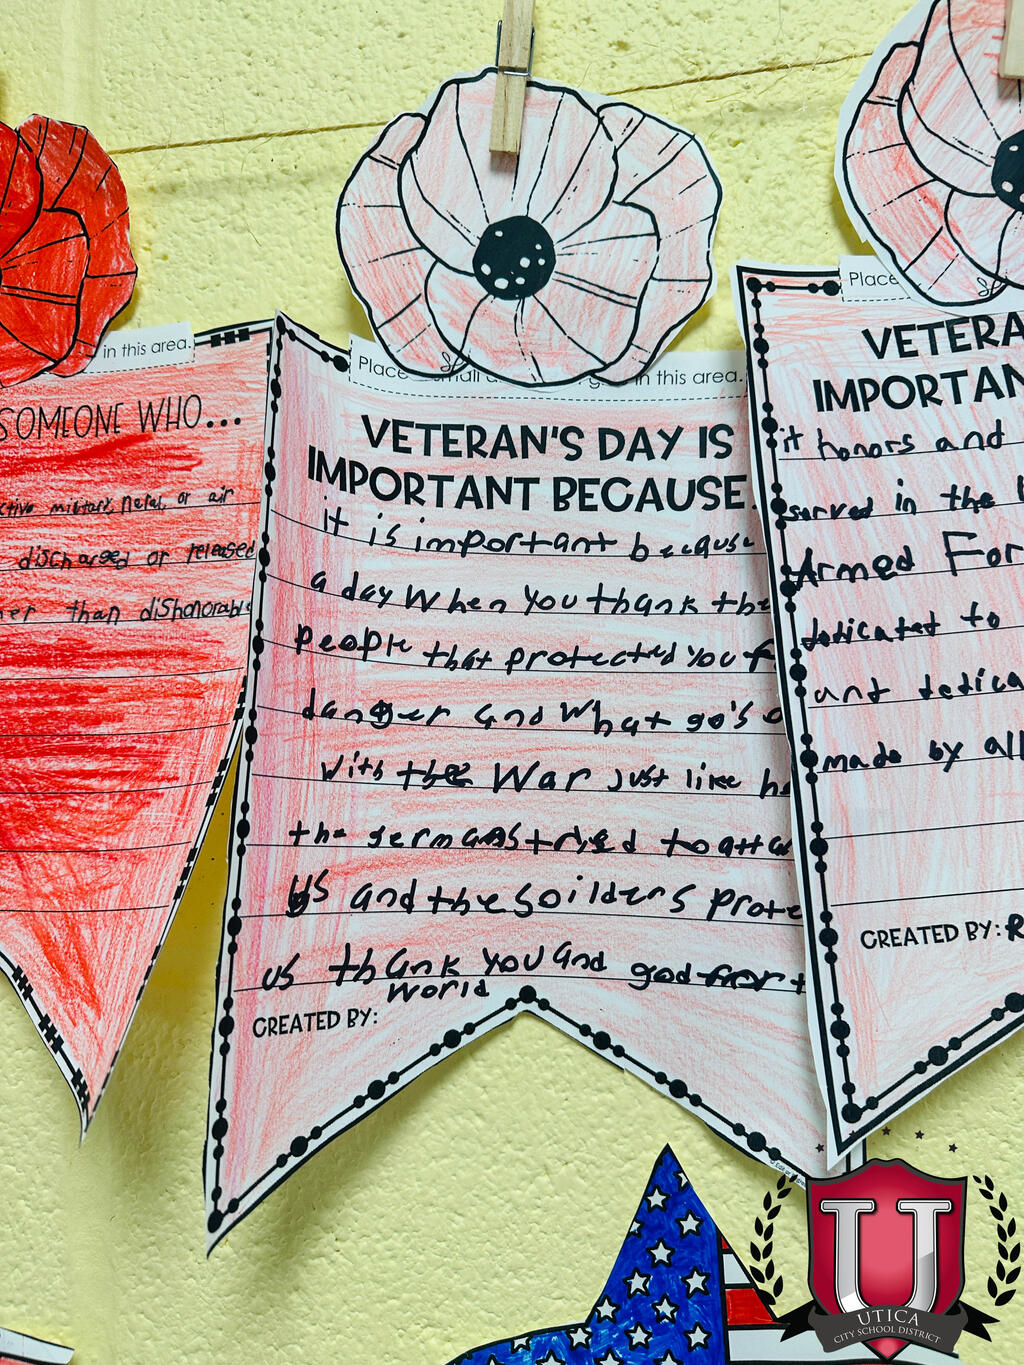 in this area.
SOMEONE WHO...
military, natal, or air
discharged or released
than dishonorable
Place in this area.
VETERAN'S DAY IS
IMPORTANT BECAUSE
it is important because
a day when you thank the
people that protected you
danger and what go's
with the war just like
the germans tried to
us and the soilders
us thank you and god for
world
CREATED BY:
Place
VETERA
IMPORTAN
it honors and
served in the
Armed For
dedicated to
ant dedica
made by all
CREATED BY: R
U
UTICA
CITY SCHOOL DISTRICT